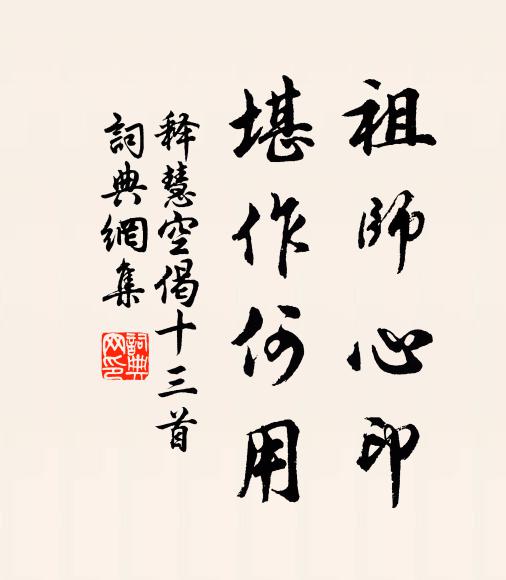 祖師心印
堪作何用
释慧空偈十三首
詞典網集
詞典
网印